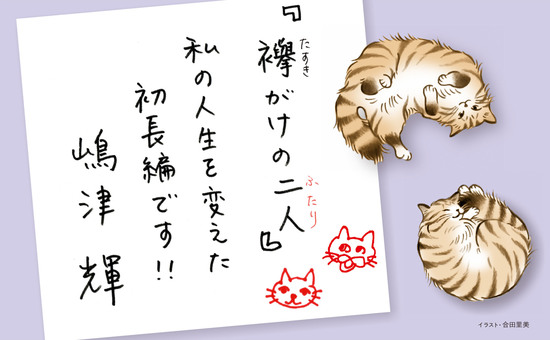 『襷がけの二人』
たすき
ふたり
私の人生を変えた
初長編です!!
嶋津輝
イラスト・合田里美